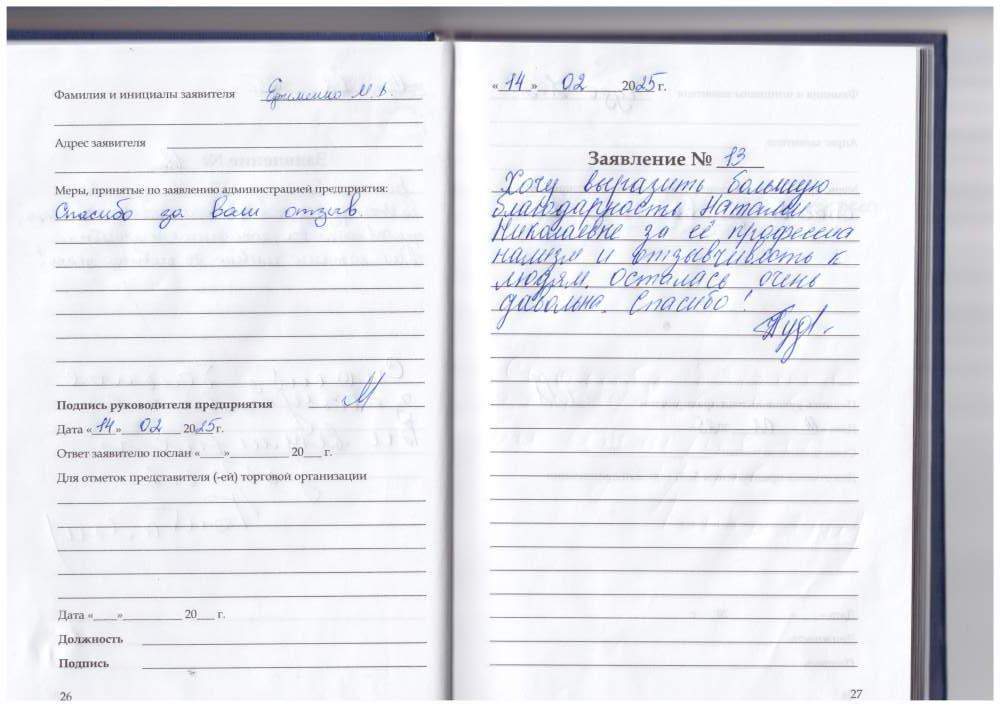 Фамилия и инициалы заявителя Ефименко М.В.
Адрес заявителя
Меры, принятые по заявлению администрацией предприятия:
Спасибо за ваш отзыв.
Подпись руководителя предприятия
Дата «14» 02 2025г.
Ответ заявителю послан «___»__________ 20___ г.
Для отметок представителя (-ей) торговой организации
Дата «____»__________ 20___ г.
Должность
Подпись
26
«14» 02 2025 г.
Заявление № 13
Хочу выразить большую
благодарность Наталии
Николаевне за её професиа
нализм и отзывчивость к
людям. Осталась очень
довольна. Спасибо!
27